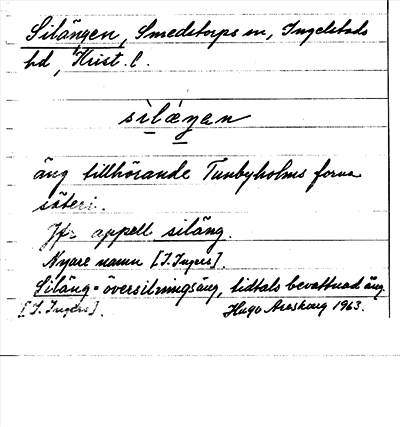 Silängen, Smedstorps sn, Ingelstads
hd, Krist. l.
sìlàŋən
äng tillhörande Tunbyholms forna
säteri.
Jfr appell siläng.
Nyare namn [I. Ingers].
Siläng = översilningsäng, tidtals bevattnad äng
[I. Ingers].
Hugo Areskoug 1963.